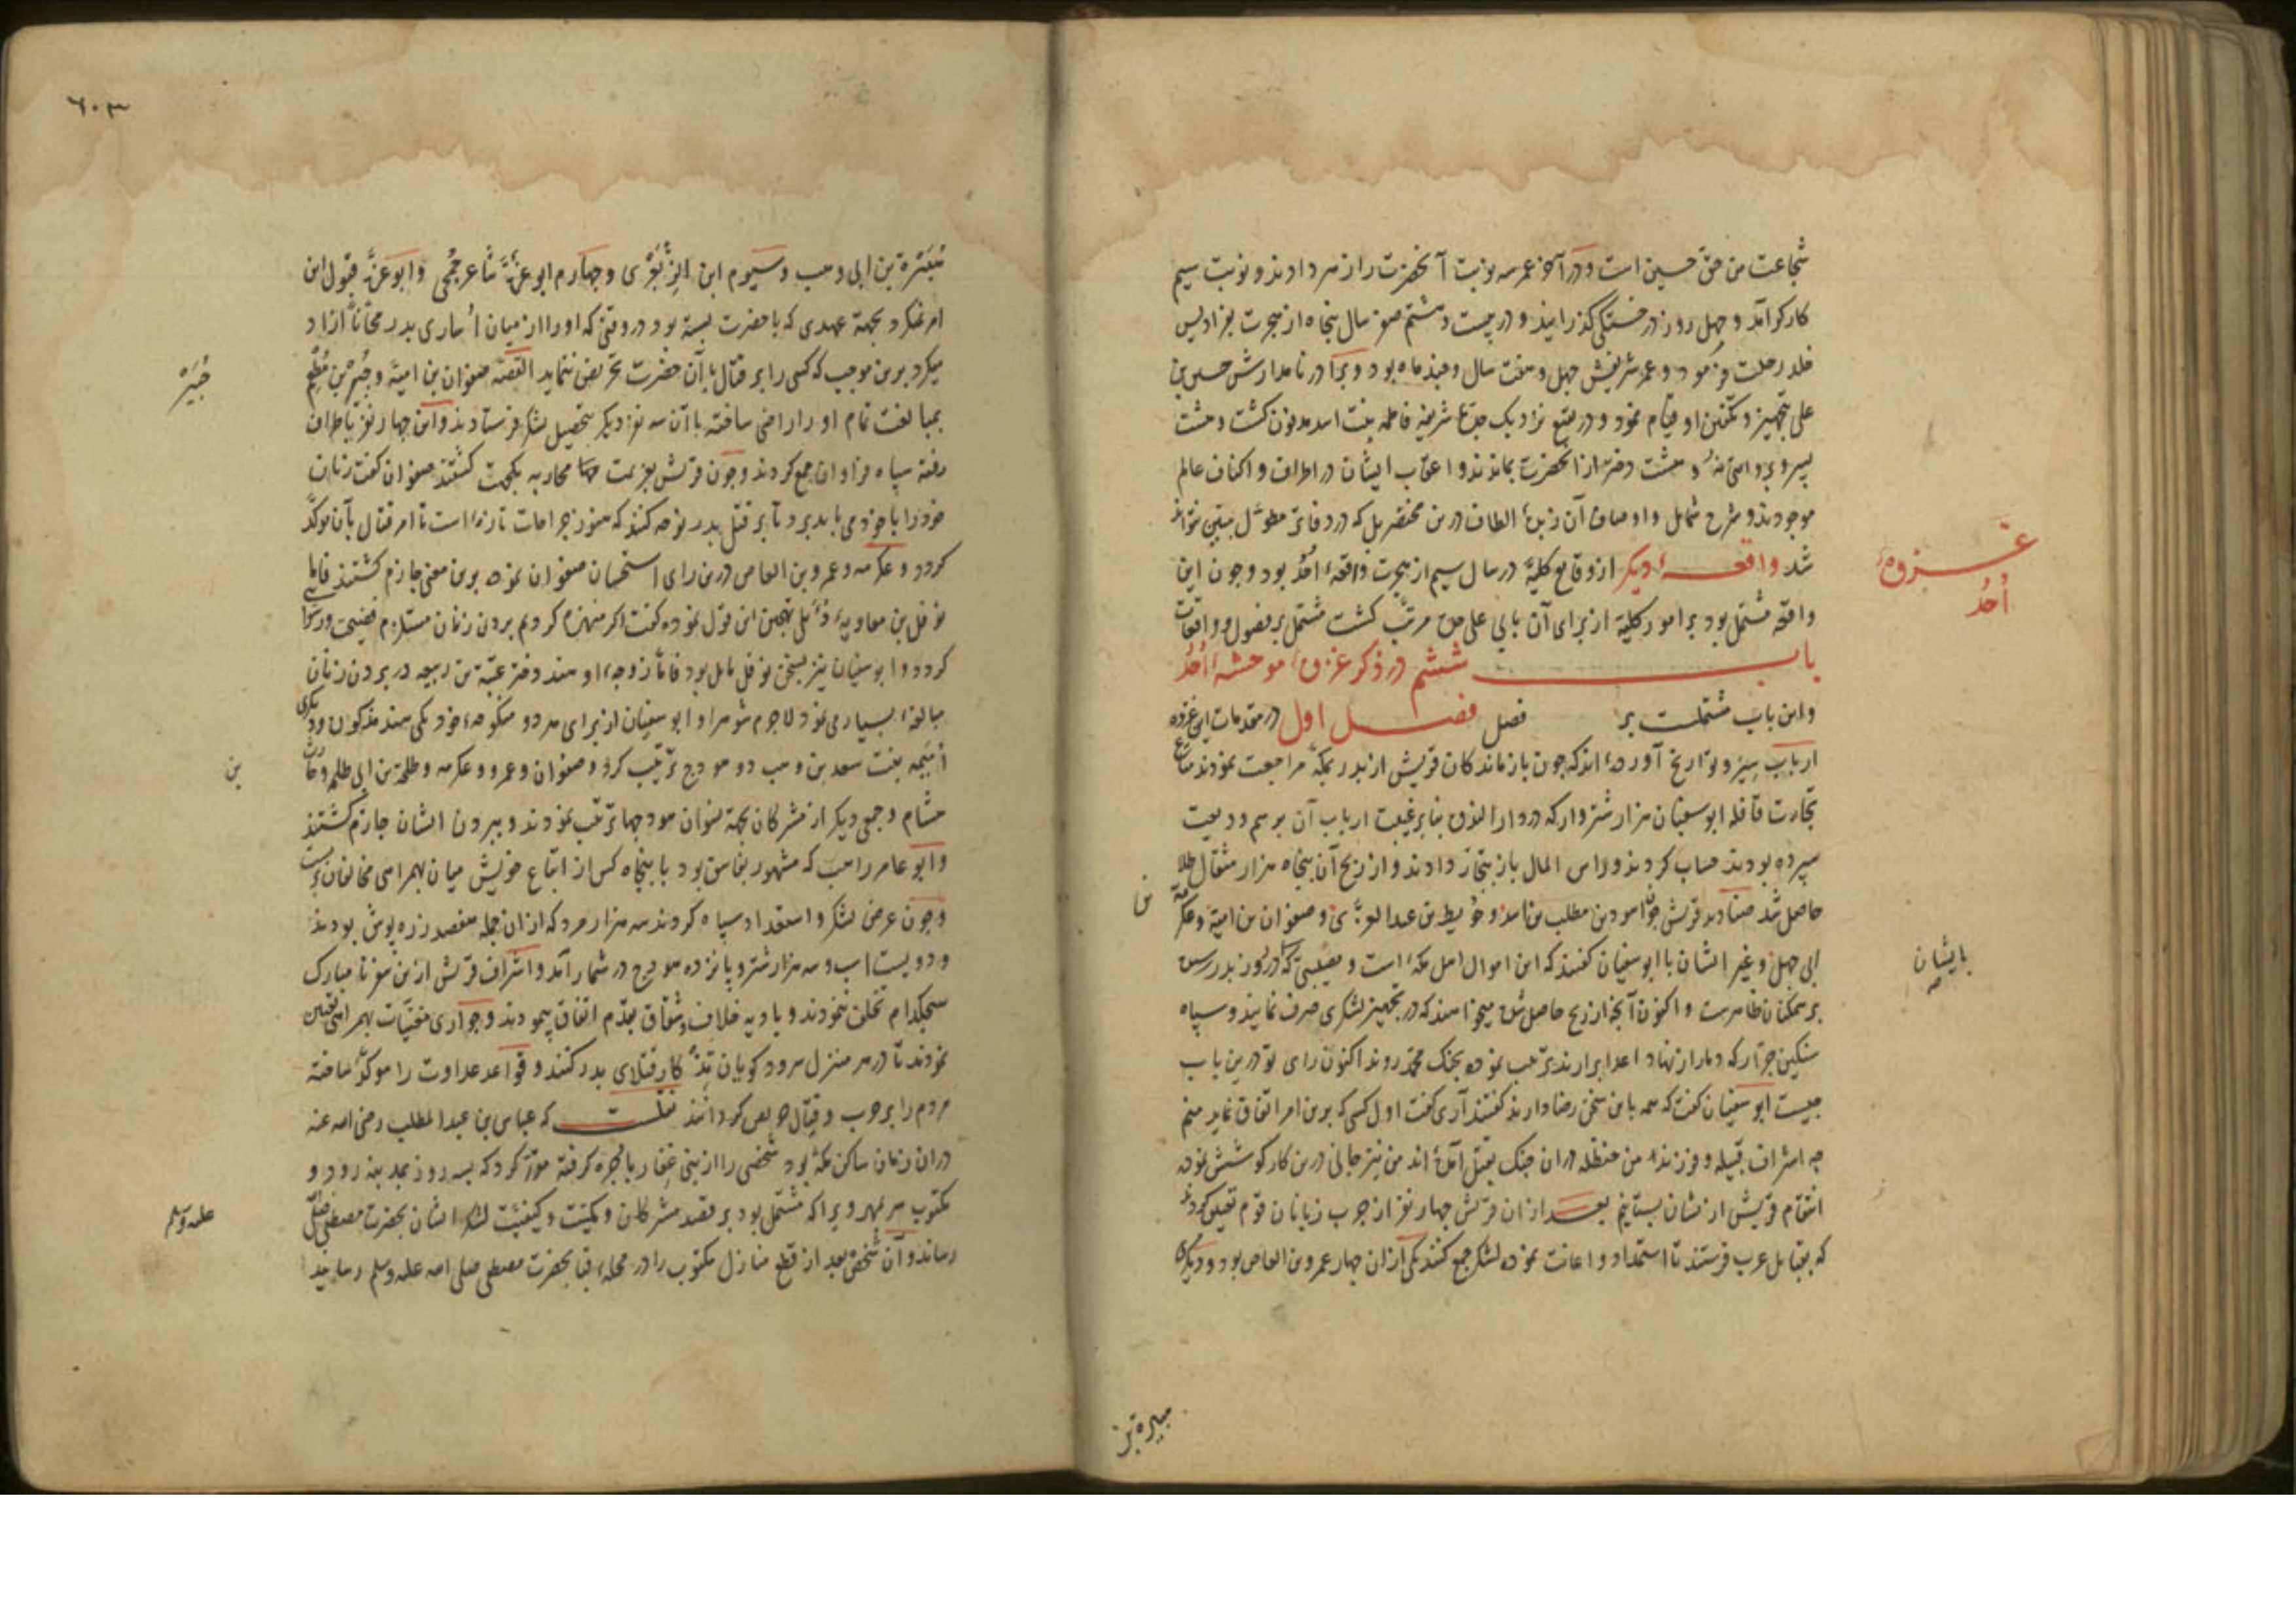 شجاعت من حق حسین است و در آخر عمر سه نوبت آنحضرت را زهر دادند و نوبت سیم
کارکر آمد و چهل روز در خستکی کذرانید و در بیست و هشتم صفر سال پنجاه از هجرت بفرادیس
خلد رحلت فرمود و عمر شریفش چهل و هفت سال و چند ماه بود و برادر نامدارش حسین بن
علی بتجهیز و تکفین او قیام نمود و در بقیع نزدیک جدهٔ شریفه فاطمه بنت اسد مدفون کشت و هشت
پسر و بروایتی نه و هشت دختر از آنحضرت بماندند و اعقاب ایشان در اطراف و اکناف عالم
موجودند و شرح شمایل و اوصاف آن زبدهٔ الطاف درین مختصر بل که در دفاتر مطول مبین نتواند
شد واقعهٔ دیکر از وقایع کلیّه در سال سیم از هجرت واقعهٔ اُحُد بود و چون این
غزوهٔ
اُحُد
واقعه مشتمل بود بر امور کلیه از برای آن بابی علی حده مرتب کشت مشتمل بر فصول و واقعات
باب ششم در ذکر غزوهٔ موحشهٔ اُحُد
و این باب مشتملست بر فصل فصل اول در مقدمات این غزوه
ارباب سیر و تواریخ آورده‌اند که چون بازماندکان قریش از بدر بمکّه مراجعت نمودند متاع
تجارت قافله ابو سفیان هزار شتروار که در دار الندوه بنا بر غیبت ارباب آن برسم ودیعت
سپرده بودند حساب کردند و راس المال باز بتجار دادند و از ربح آن پنجاه هزار مثقال طلا
حاصل شد صنادید قریش چون اسود بن مطلب بن اسد و حُویطب بن عبد العزّی و صفوان بن امیّة و عکرمة
بن
ابی جهل و غیر ایشان با ابو سفیان کفتند که این اموال اهل مکّه است و مصیبتی که در روز بدر رسید
بایشان
بر همکنان ظاهرست و اکنون آنچه از ربح حاصل شده میخواهند که در تجهیز لشکری صرف نمایند و سپاه
سنکین جرّار که دمار از نهاد اعدا برارند ترتیب نموده بجنک محمّد روند اکنون رای تو درین باب
چیست ابو سفیان کفت که همه باین سخن رضا دارند کفتند آری کفت اول کسی که برین امر اتفاق نماید منم
چه اشراف قبیله و فرزند من حنظله دران جنک بقتل آمده‌اند من نیز جانی درین کار کوشش نموده
انتقام قریش از نشان بستانیم بعد ازان قریش چهار نفر از چرب زبانان قوم تعیین کردند
که بقبایل عرب فرستند تا استمداد و اعانت نموده لشکر جمع کنند یکی ازان چهار عمرو بن العاص بود و دیکری
هبیره بن
٦٠٣
هُبَیرة بن ابی وهب و سیوم ابن الزِّبَعْرَی و چهارم ابو عزّة شاعر جُمَحی و ابو عزّه قبول این
امر نمیکرد بجهة عهدی که با حضرت بسته بود در وقتی که او را از میان اُساری بدر مجّاناً ازاد
میکرد برین موجب که کسی را بر قتال با آن حضرت تحریض ننماید القصّه صفوان بن امیّة و جُبیر بن مُطعِم
جُبَیْر
بمبالغت تمام او را راضی ساخته با آن سه نفر دیکر بتحصیل لشکر فرستادند و این چهار نفر باطراف
رفته سپاه فراوان جمع کردند و چون قریش بعزیمت محاربه یکجهت کشتند صفوان کفت زنان
خود را با خود می باید برد تا بر قتل بدر نوحه کنند که هنوز جراحات تازه است تا امر قتال بآن موکّد
کردد و عکرمه و عمرو بن العاص درین رای استحسان صفوان نموده برین معنی جازم کشتند فاما
نوفل بن معاویهٔ دُئلی تهجین این قول نموده کفت اکر منهزم کردیم بردن زنان مستلزم فضیحت و رسوا
کردد و ابو سفیان نیز بسخن نوفل مایل بود فاما زوجهٔ او هند دختر عتبة بن ربیعه در بردن زنان
مبالغهٔ بسیاری نمود لاجرم شوهر او ابو سفیان از برای هر دو منکوحهٔ خود یکی هند مذکوره و دیکری
اُمَیمه بنت سعد بن وهب دو هودج ترتیب کرد و صفوان و عمرو و عکرمه و طلحة بن ابی طلحه و حارث
بن
هشام و جمعی دیکر از مشرکان بجهة نسوان هودجها ترتیب نمودند و ببردن ایشان جازم کشتند
و ابو عامر راهب که مشهور بفاسق بود با پنجاه کس از اتباع خویش میان بهمراهی مخالفان بست
و چون عرض لشکر و استعداد سپاه کردند سه هزار مرد که ازان جمله هفصد زره پوش بودند
و دویست اسب و سه هزار شتر و پانزده هودج در شمار آمد و اشراف قریش ازین سفر نامبارک
هیچکدام تخلف ننمودند و بادیه خلاف و شقاق بقدم اتفاق پیمودند و جواری مغنیّات بهمراهی تعیین
نمودند تا در هر منزل سرود کویان تذکار قتلای بدر کنند و قواعد عداوت را موکّد ساخته
مردم را بر حرب و قتال حریص کردانند نقلست که عباس بن عبد المطلب رضی الله عنه
دران زمان ساکن مکّه بود شخصی را از بنی غِفار باُجره کرفته مقرّر کرد که بسه روز بمدینه رود و
مکتوب سر بمهر ویرا که مشتمل بود بر قصد مشرکان و کمیّت و کیفیّت لشکر ایشان بحضرت مصطفی صلّی
علیه وسلم
رساند و آن شخص بعد از قطع منازل مکتوب را در محلهٔ قبا بحضرت مصطفی صلی الله علیه وسلم رسانید